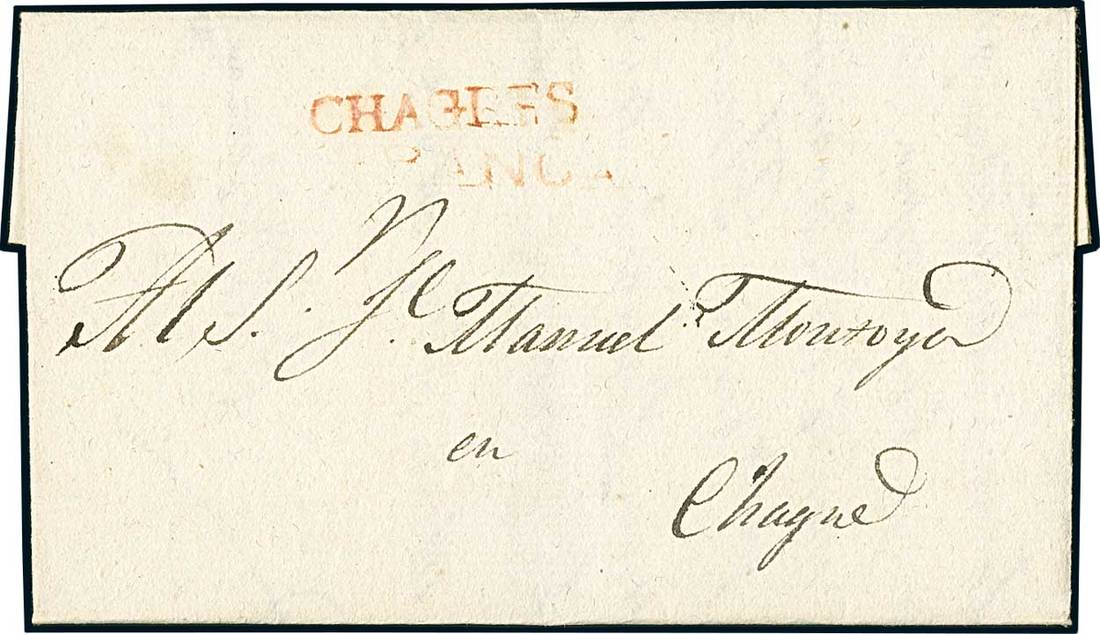 CHAGRES
RANCA
Al S.r J.e Manuel Montoya
en
Chagre